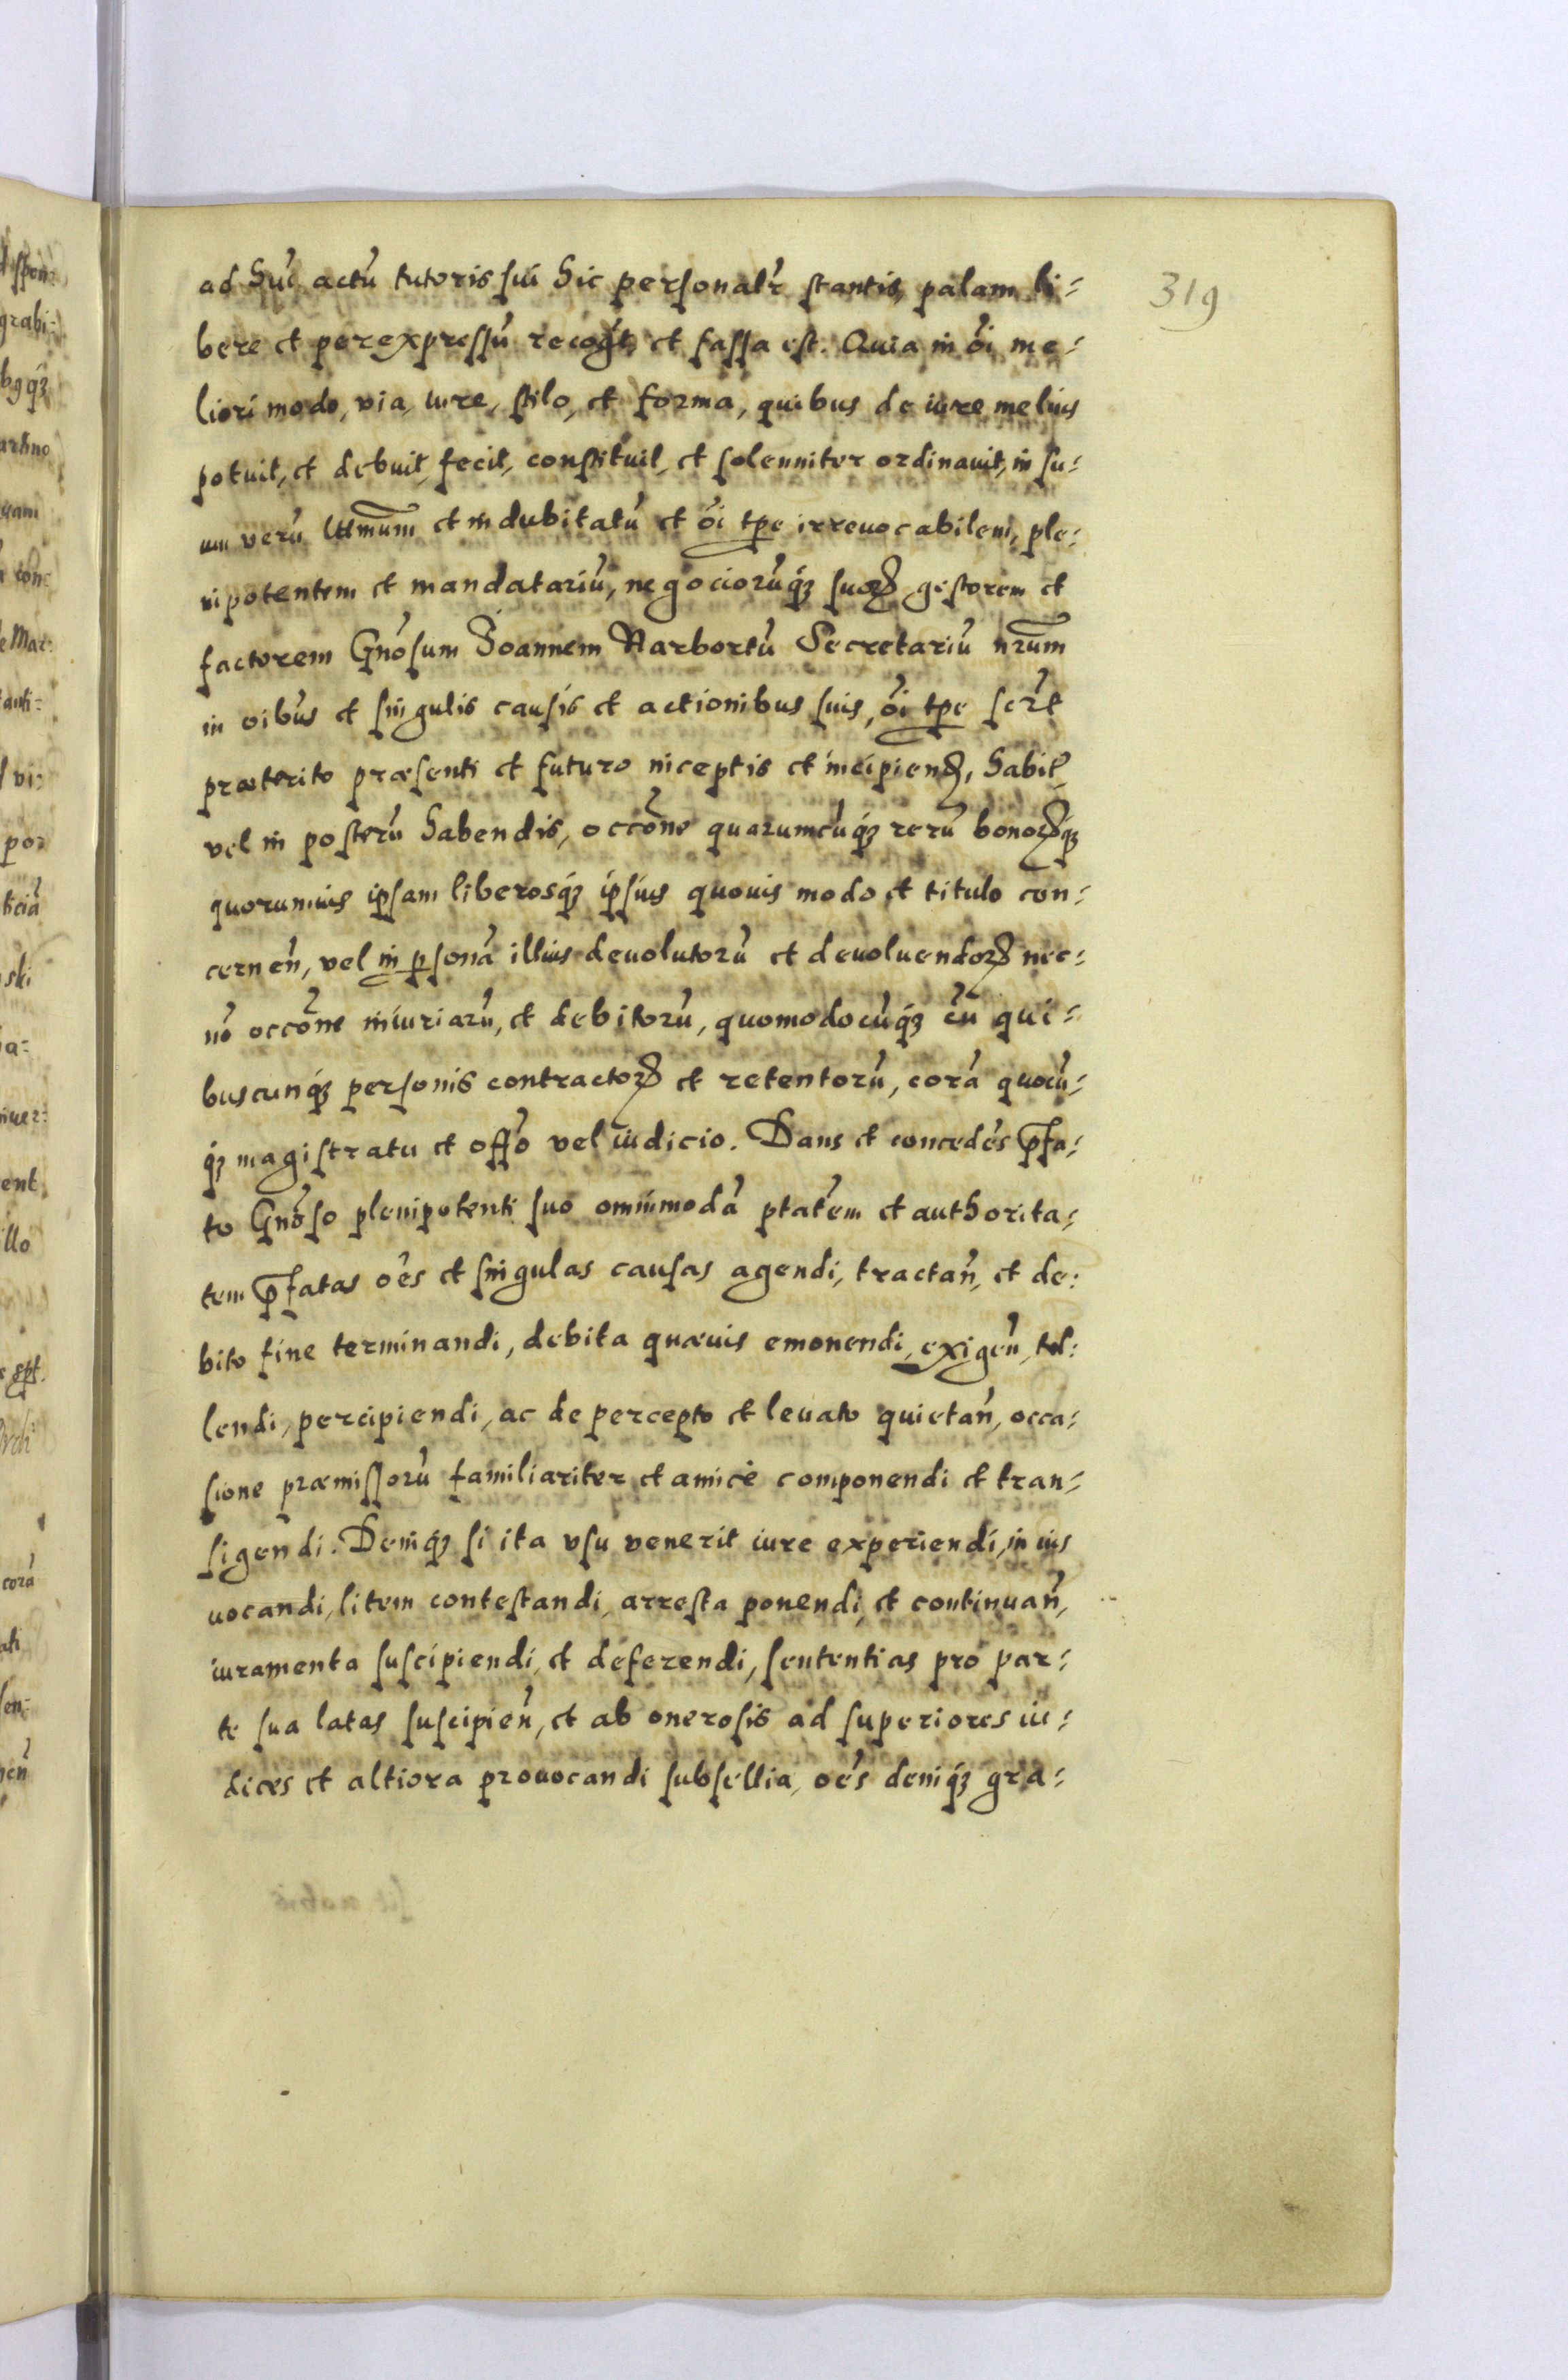 319
ad hūc actū tutoris sui hic personalr̄ stantis, palam li=
bere et perexpressū recogt, et fassa est. Quia in ōi me=
liori modo, via, iure, stilo, et forma, quibus de iure melius
potuit, et debuit, fecit, constituit, et solenniter ordinauit, in su=
um verū lttmum et indubitatū et ōi tpe irreuocabilem, ple=
nipotentem et mandatariū, negociorūq; suoꝝ gestorem et
factorem Gnōsum Joannem Narbortū Secretariū nrum
in oibūs et singulis causis et actionibus suis, ōi tpe scrt
præterito præsenti et futuro inceptis et incipienð, habit̄
vel in posterū habendis, occōne quarumcūq; rerū bonoꝝq;
quorumuis ipsam liberosq; ipsius quouis modo et titulo con=
cernen̄, vel in ꝑsonā illius deuolutorū et deuoluendoꝝ nec=
nō occōne iniuriarū, et debitorū, quomodocūq; cū qui=
buscunq; personis contractoꝝ et retentorū, corā quocū=
q; magistratu et offō vel iudicio. Dans et concedēs p̄fa=
to Gnōso plenipotenti suo omnimodā ptatem et authorita=
tem p̄fatas oēs et singulas causas agendi, tractan̄, et de=
bito fine terminandi, debita quæuis emonendi, exigen̄, tol=
lendi, percipiendi, ac de percepto et leuato quietan̄, occa=
sione præmissorū familiariter et amicè componendi et tran=
sigendi. Deniq; si ita vsu venerit iure experiendi, in ius
uocandi, litem contestandi, arresta ponendi, et continuan̄,
iuramenta suscipiendi, et deferendi, sententias pro par=
te sua latas suscipien̄, et ab onerosis ad superiores iu=
dices et altiora prouocandi subsellia, oēs deniq; gra=